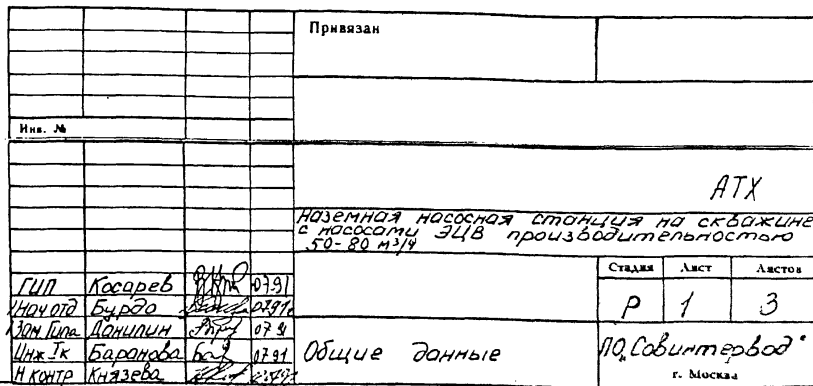 Привязан
Инв. №
АТХ
Наземная насосная станция на скважине
с насосами ЭЦВ производительностью
50-80 м³/ч
Стадия Лист Листов
Р 1 3
ГИП Косарев 07.91
Нач отд Бурдо 07.91
Зам Гипа Данилин 07.91
Инж Iк Баранова 07.91
Н контр Князева
Общие данные
ПО „Совинтервод"
г. Москва